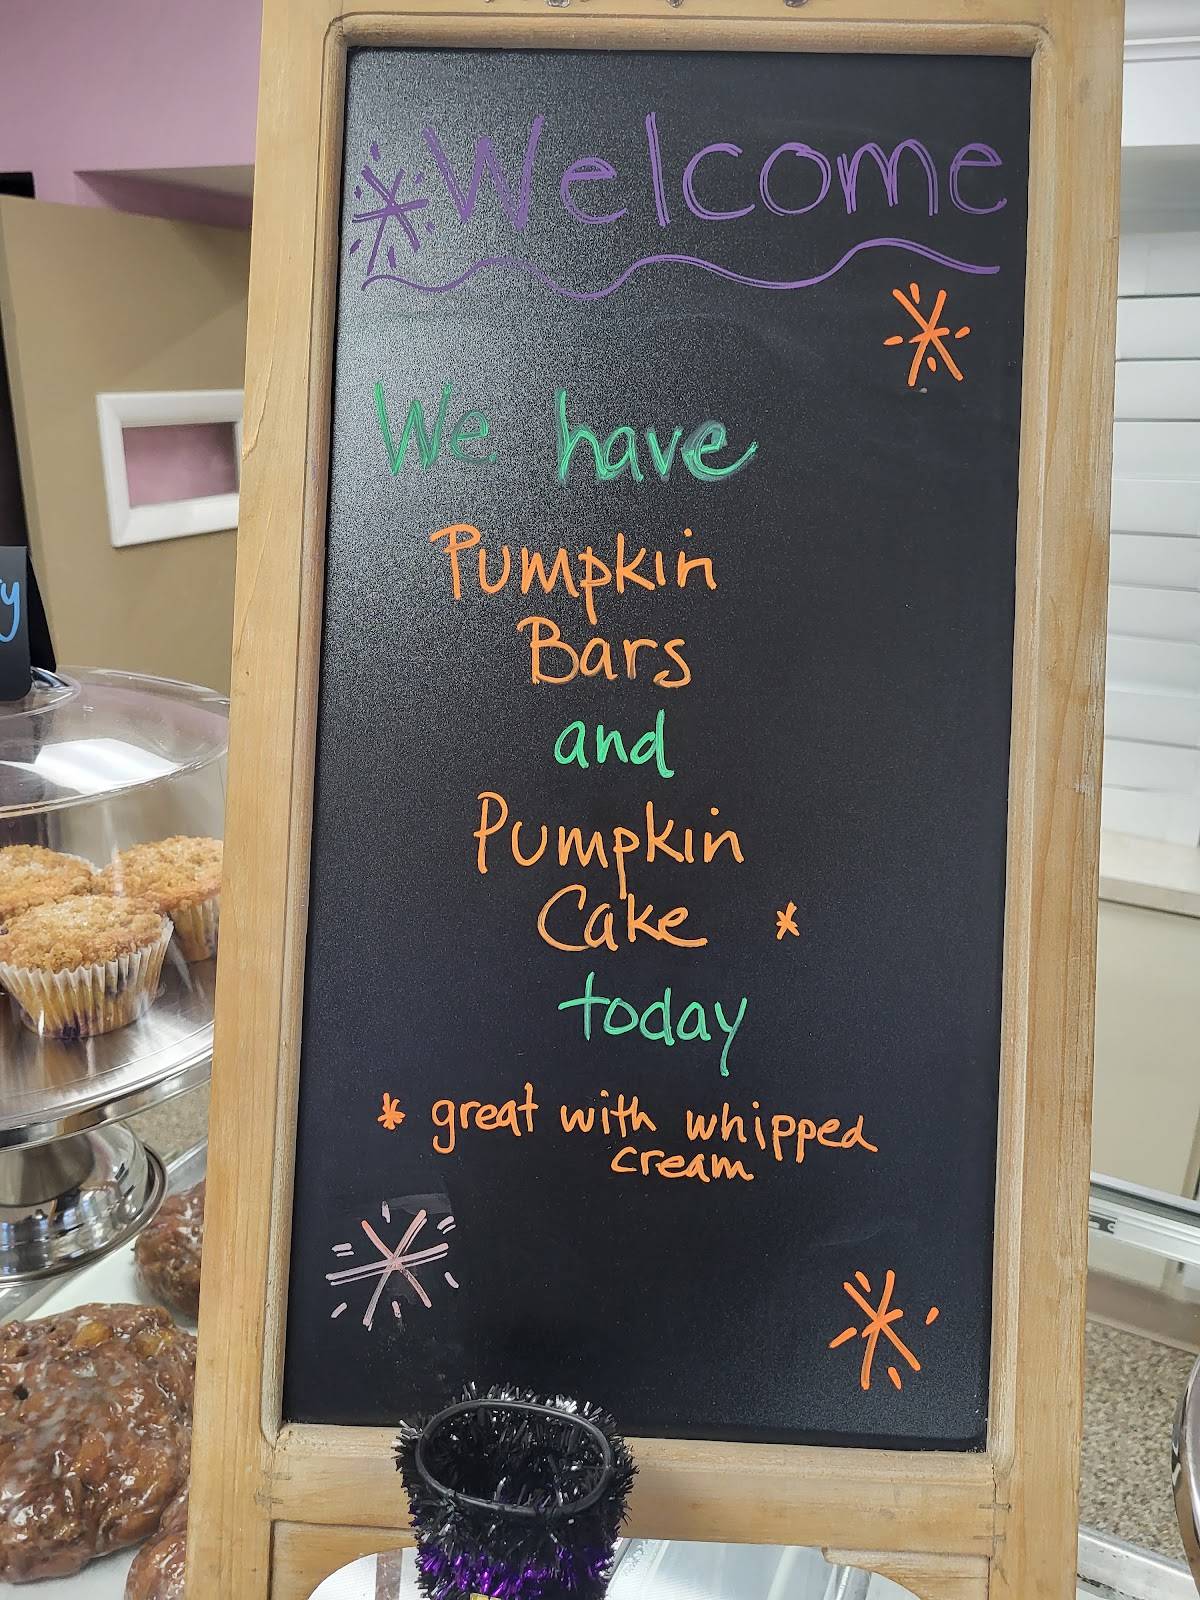 Welcome
We have
Pumpkin
Bars
and
Pumpkin
Cake *
today
* great with whipped
cream
y